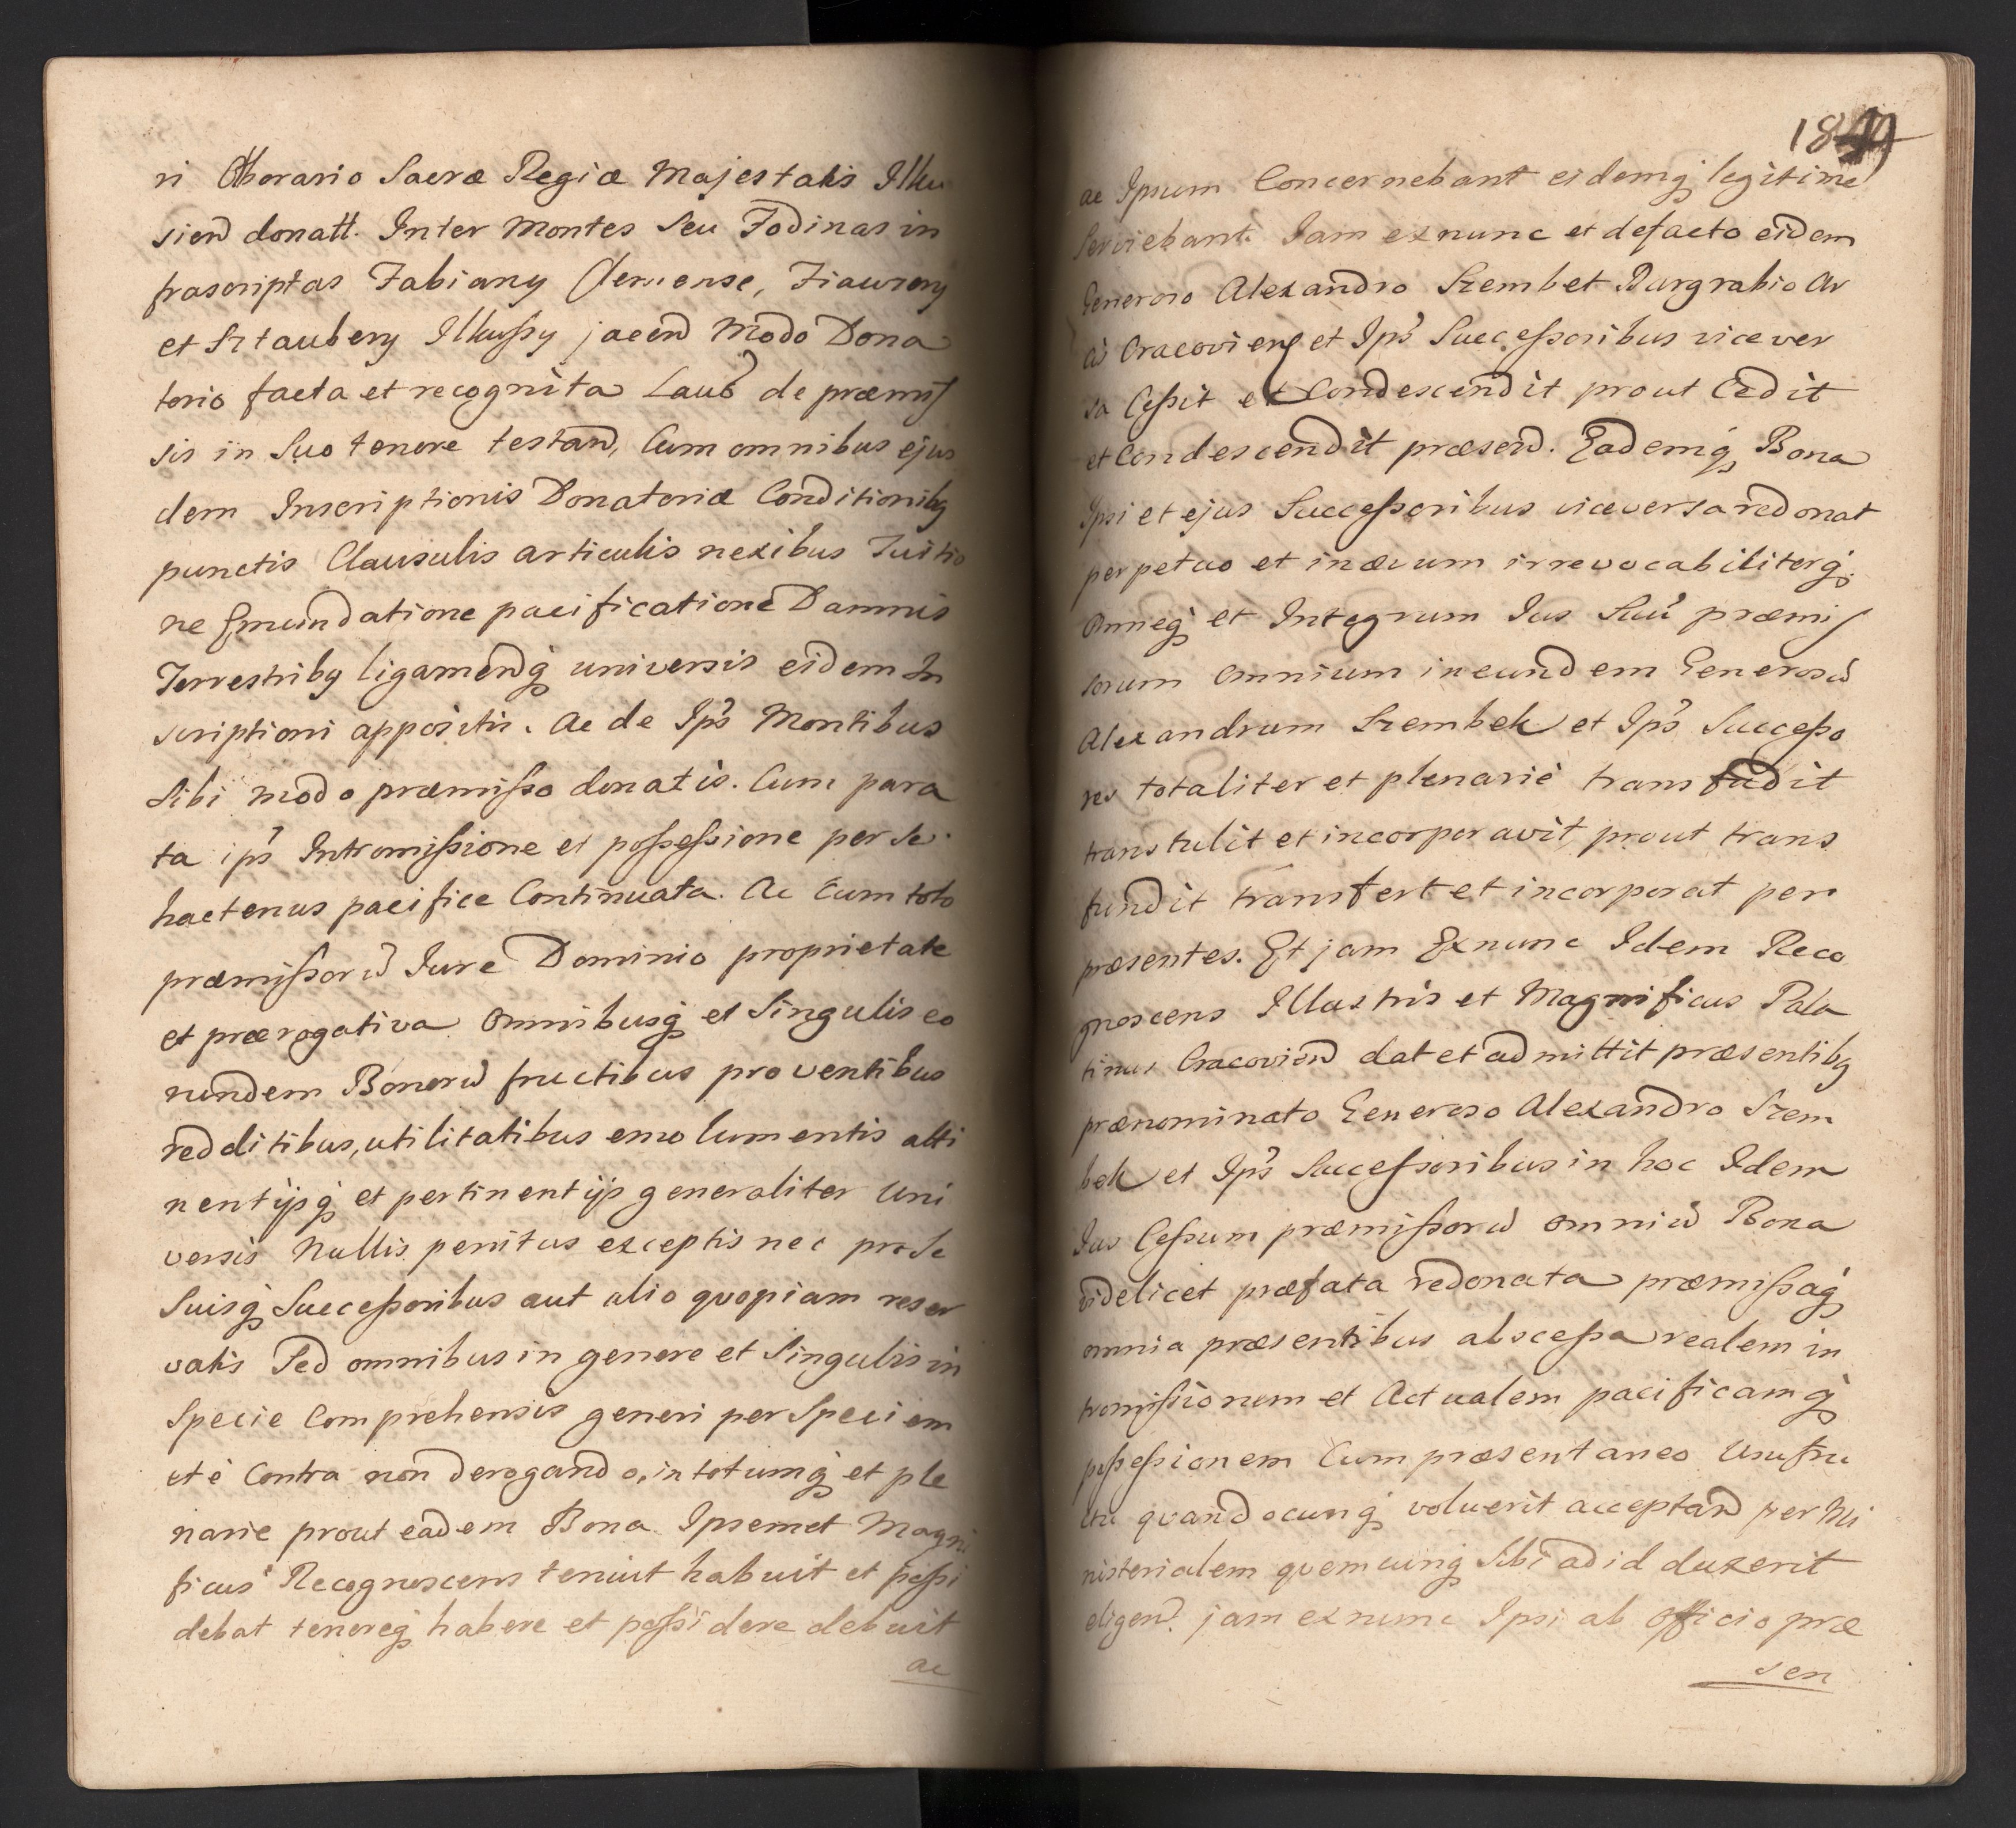 ri Oborario Sacræ Regiæ Majestatis Ilku
sien donatt. Inter Montes Seu Fodinas in
frascriptas Fabiany
et Sztaubery Ilkussy jacen Modo Dona
torio facta et recognita Laud de præmis
sis in Suo tenore testand, Cum omnibus ejus
dem Inscriptionis Donatoriæ Conditionibq
punctis Clausulis articulis nexibus Tuitio
ne Emundatione pacificatione Damnis
Terrestribq ligamenq universis eidem In
scriptioni appositis. Ac de Ips Montibus
Sibi modo præmisso donatis. Cum para
ta ips Intromissione et possessione per Se
hactenus pacifice Continuata. Ac Cum toto
præmissorū Iure Dominio proprietate
et prærogativa Omnibusq et Singulis eo
rundem Bonorū fructibus proventibus
redditibus, utilitatibus emolumentis atti
nentijsq et pertinentijs generaliter Uni
versis Nullis penitus exceptis nec pro Se
Suisq Successoribus aut alio qvopiam reser
vatis Sed omnibus in genere et Singulis in
Specie Comprehensis generi per Speciem
et è Contra non derogando, in totumq et ple
narie prout eadem Bona Ipsemet Magni
ficus Recognoscens tenuit habuit et possi
debat tenereq habere et possidere debuit
ac
184
ac Ipsum Concernebant eidemq legitime
Serviebant. Iam exnunc et defacto eidem
Generoso Alexandro Szembek Burgrabio Ar
cis Cracovien et Ips Successoribus vicever
sa Cessit et Condescendit prout Cedit
et Condescendit præsen. Eademq Bona
Ipsi et ejus Successoribus viceversa redonat
perpetuo et inævum irrevocabiliterq.
Omneq et Integrum Ius Suū præmis
sorum Omnium in eundem Generosū
Alexandrum Szembek et Ips Successo
res totaliter et plenariè transfudit
transtulit et incorporavit, prout trans
fundit transfert et incorporat per
præsentes. Et jam Exnunc Idem Reco
gnoscens Illustris et Magnificus Pala
tinus Cracovien dat et admittit præsentibq
prænominato Generoso Alexandro Szem
bek et Ips Successoribus in hoc Idem
Ius Cessum præmissorū omniū Bona
videlicet præfata redonata præmissaq
omnia præsentibus abscessa realem in
tromissionem et Actualem pacificamq
possessionem Cum præsentaneo Usufru
ctu qvandocunq voluerit acceptand per Mi
nisterialem qvemcunq Sibi ad id duxerit
eligend. jam exnunc Ipsi ab Officio præ
sen